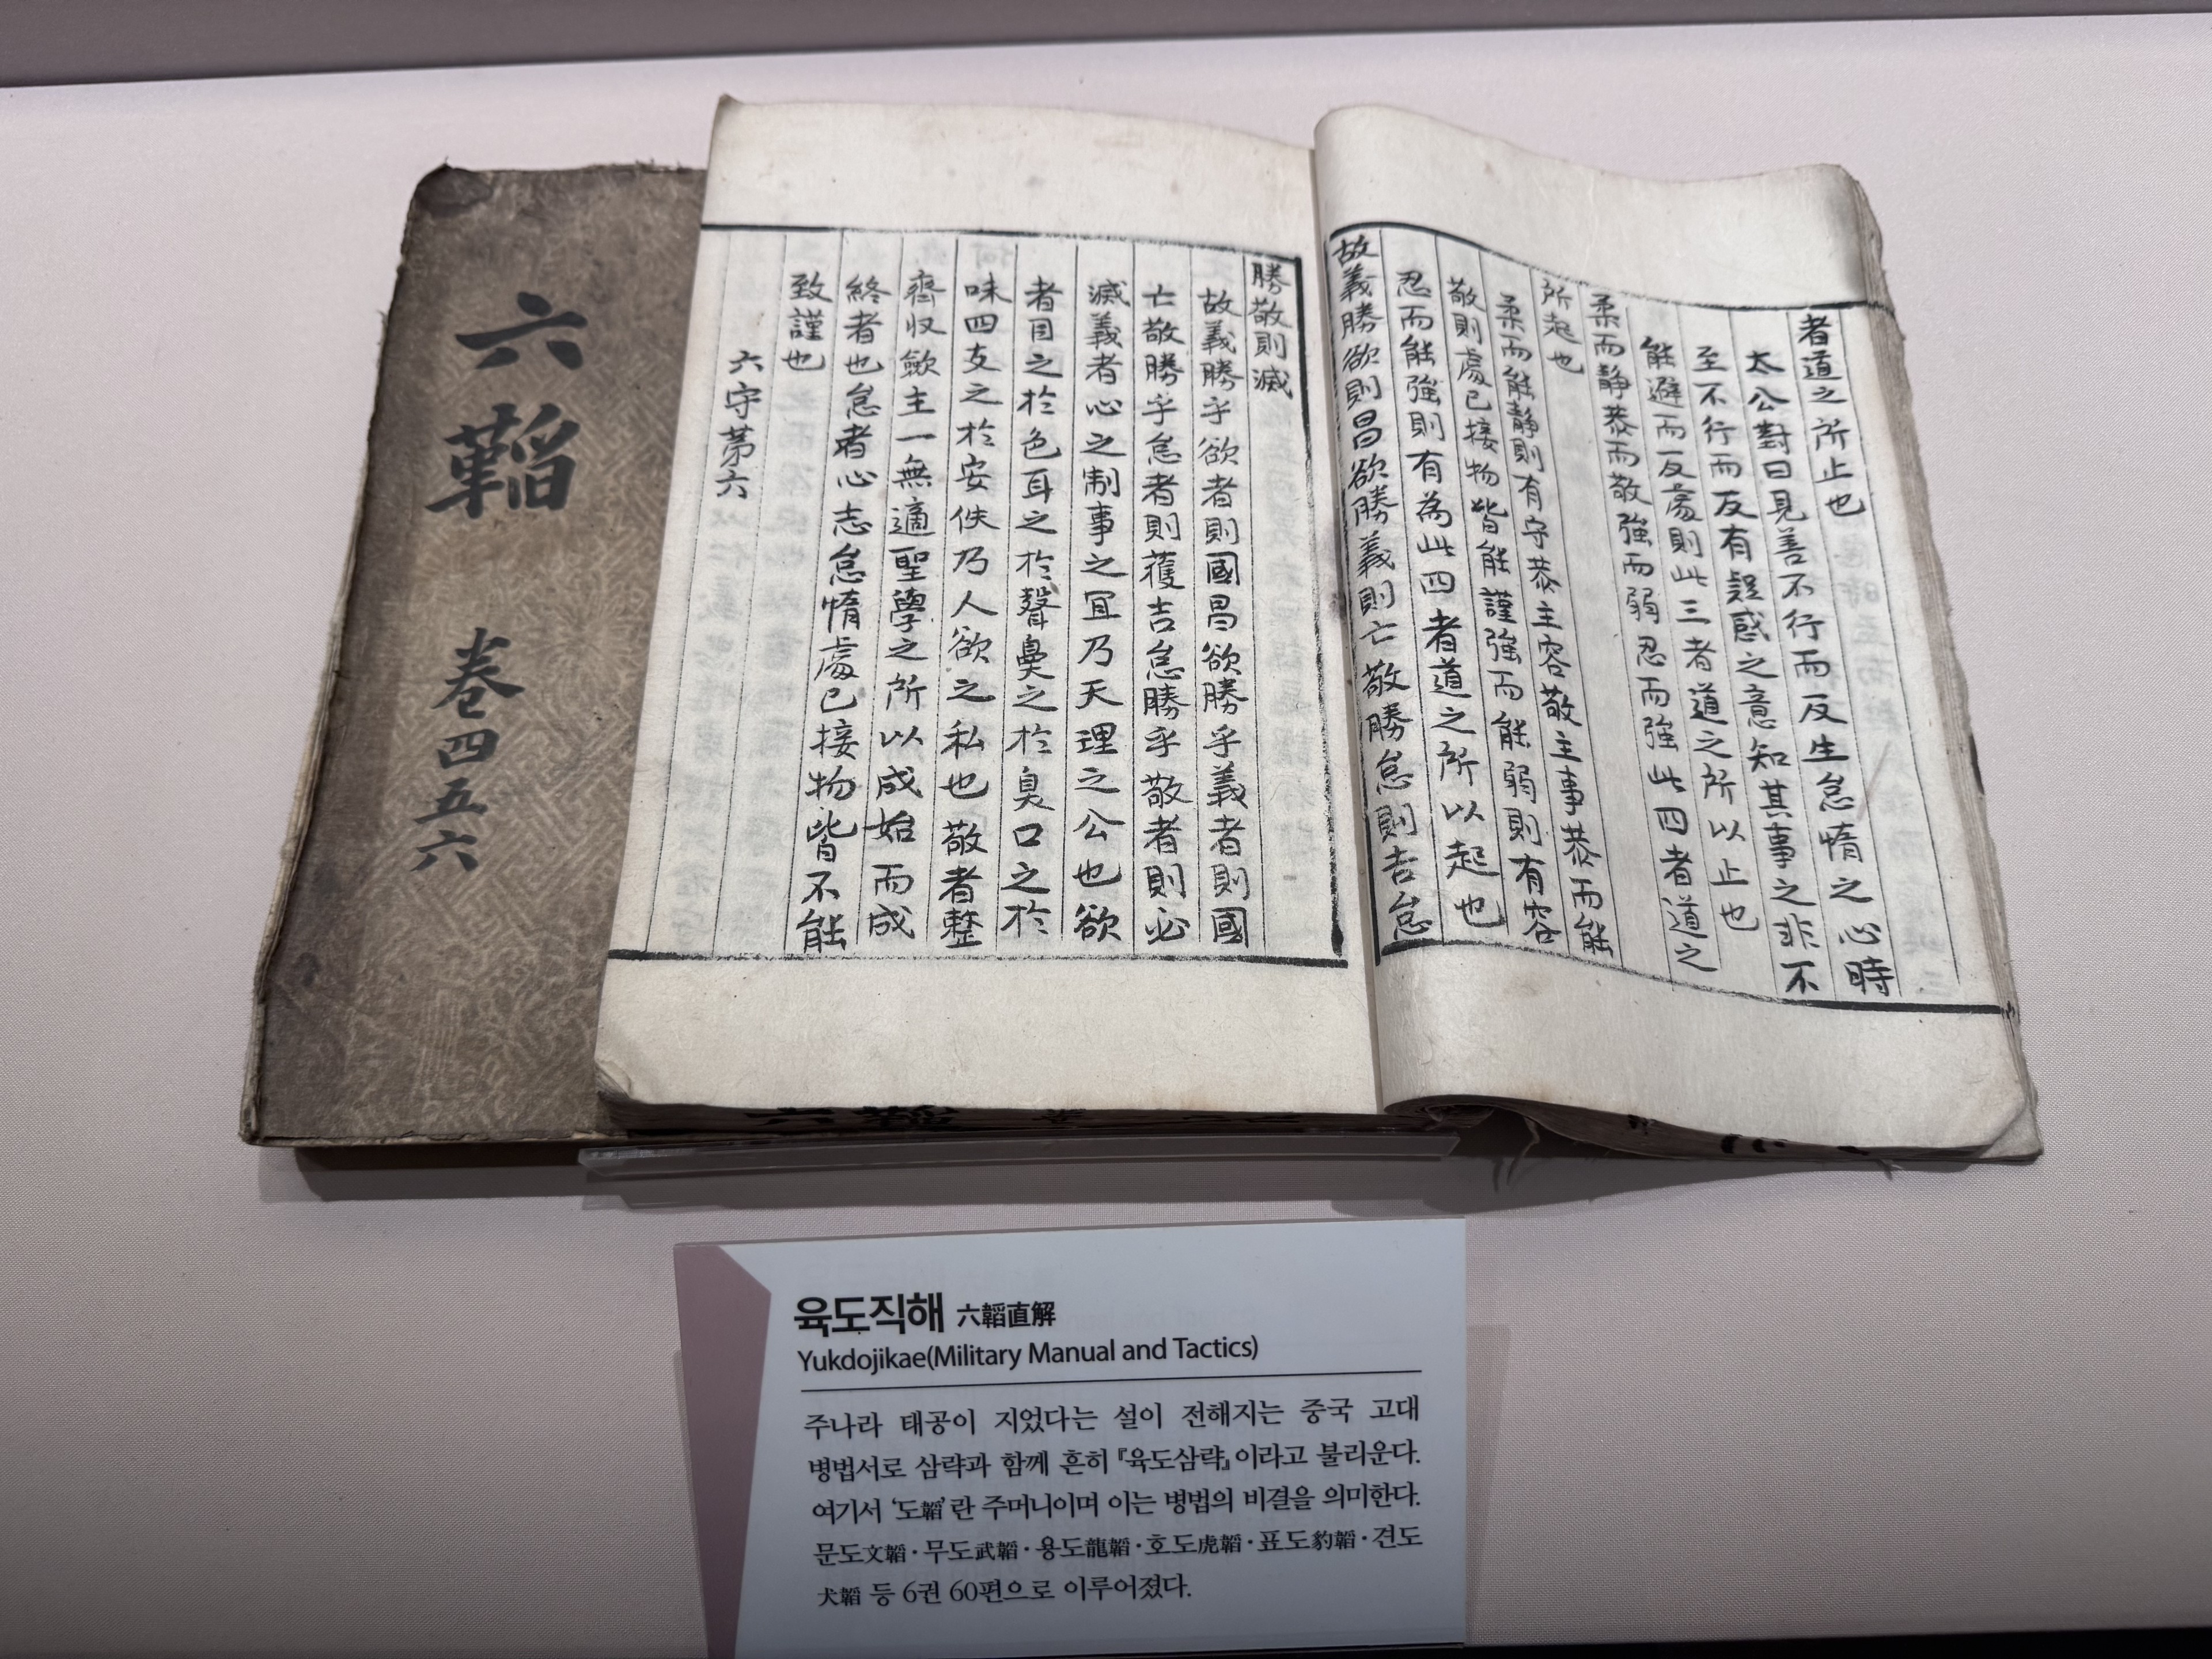 者道之所止也
太公對曰見善不行而反生怠惰之心時
至不行而反有疑惑之意知其事之非不
能避而反處則此三者道之所以止也
柔而静恭而敬強而弱忍而強此四者道之
所起也
柔而能静則有守恭主容敬主事恭而能
敬則處已接物皆能謹強而能弱則有容
忍而能強則有為此四者道之所以起也
故義勝欲則昌欲勝義則亡敬勝怠則吉怠
勝敬則滅
故義勝乎欲者則國昌欲勝乎義者則國
亡敬勝乎怠者則獲吉怠勝乎敬者則必
滅義者心之制事之冝乃天理之公也欲
者目之於色耳之於聲鼻之於臭口之於
味四支之於安佚乃人欲之私也敬者整
齊収歛主一無適聖學之所以成始而成
終者也怠者心志怠惰處已接物皆不能
致謹也
六守苐六
六韜 卷四五六
육도직해 六韜直解
Yukdojikae(Military Manual and Tactics)
주나라 태공이 지었다는 설이 전해지는 중국 고대
병법서로 삼략과 함께 흔히 『육도삼략』이라고 불리운다.
여기서 ‘도韜’란 주머니이며 이는 병법의 비결을 의미한다.
문도文韜·무도武韜·용도龍韜·호도虎韜·표도豹韜·견도
犬韜 등 6권 60편으로 이루어졌다.